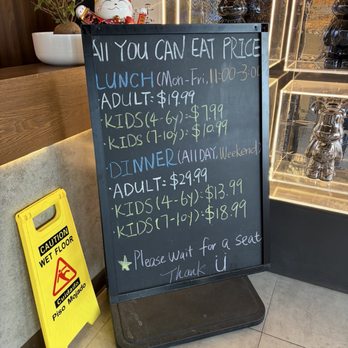 All YOU CAN EAT PRICE
LUNCH (Mon-Fri, 11:00-3:00
ADULT: $19.99
KIDS (4-6y): $7.99
KIDS (7-10y): $10.99
DINNER (All DAY, Weekend)
• ADULT: $29.99
• KIDS (4-6y): $13.99
• KIDS (7-10y): $18.99
Please wait for a seat
Thank U
CAUTION
WET FLOOR
Cuidado
Piso Mojado